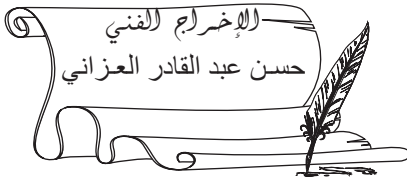 الإخراج الفني
حسن عبد القادر العزاني